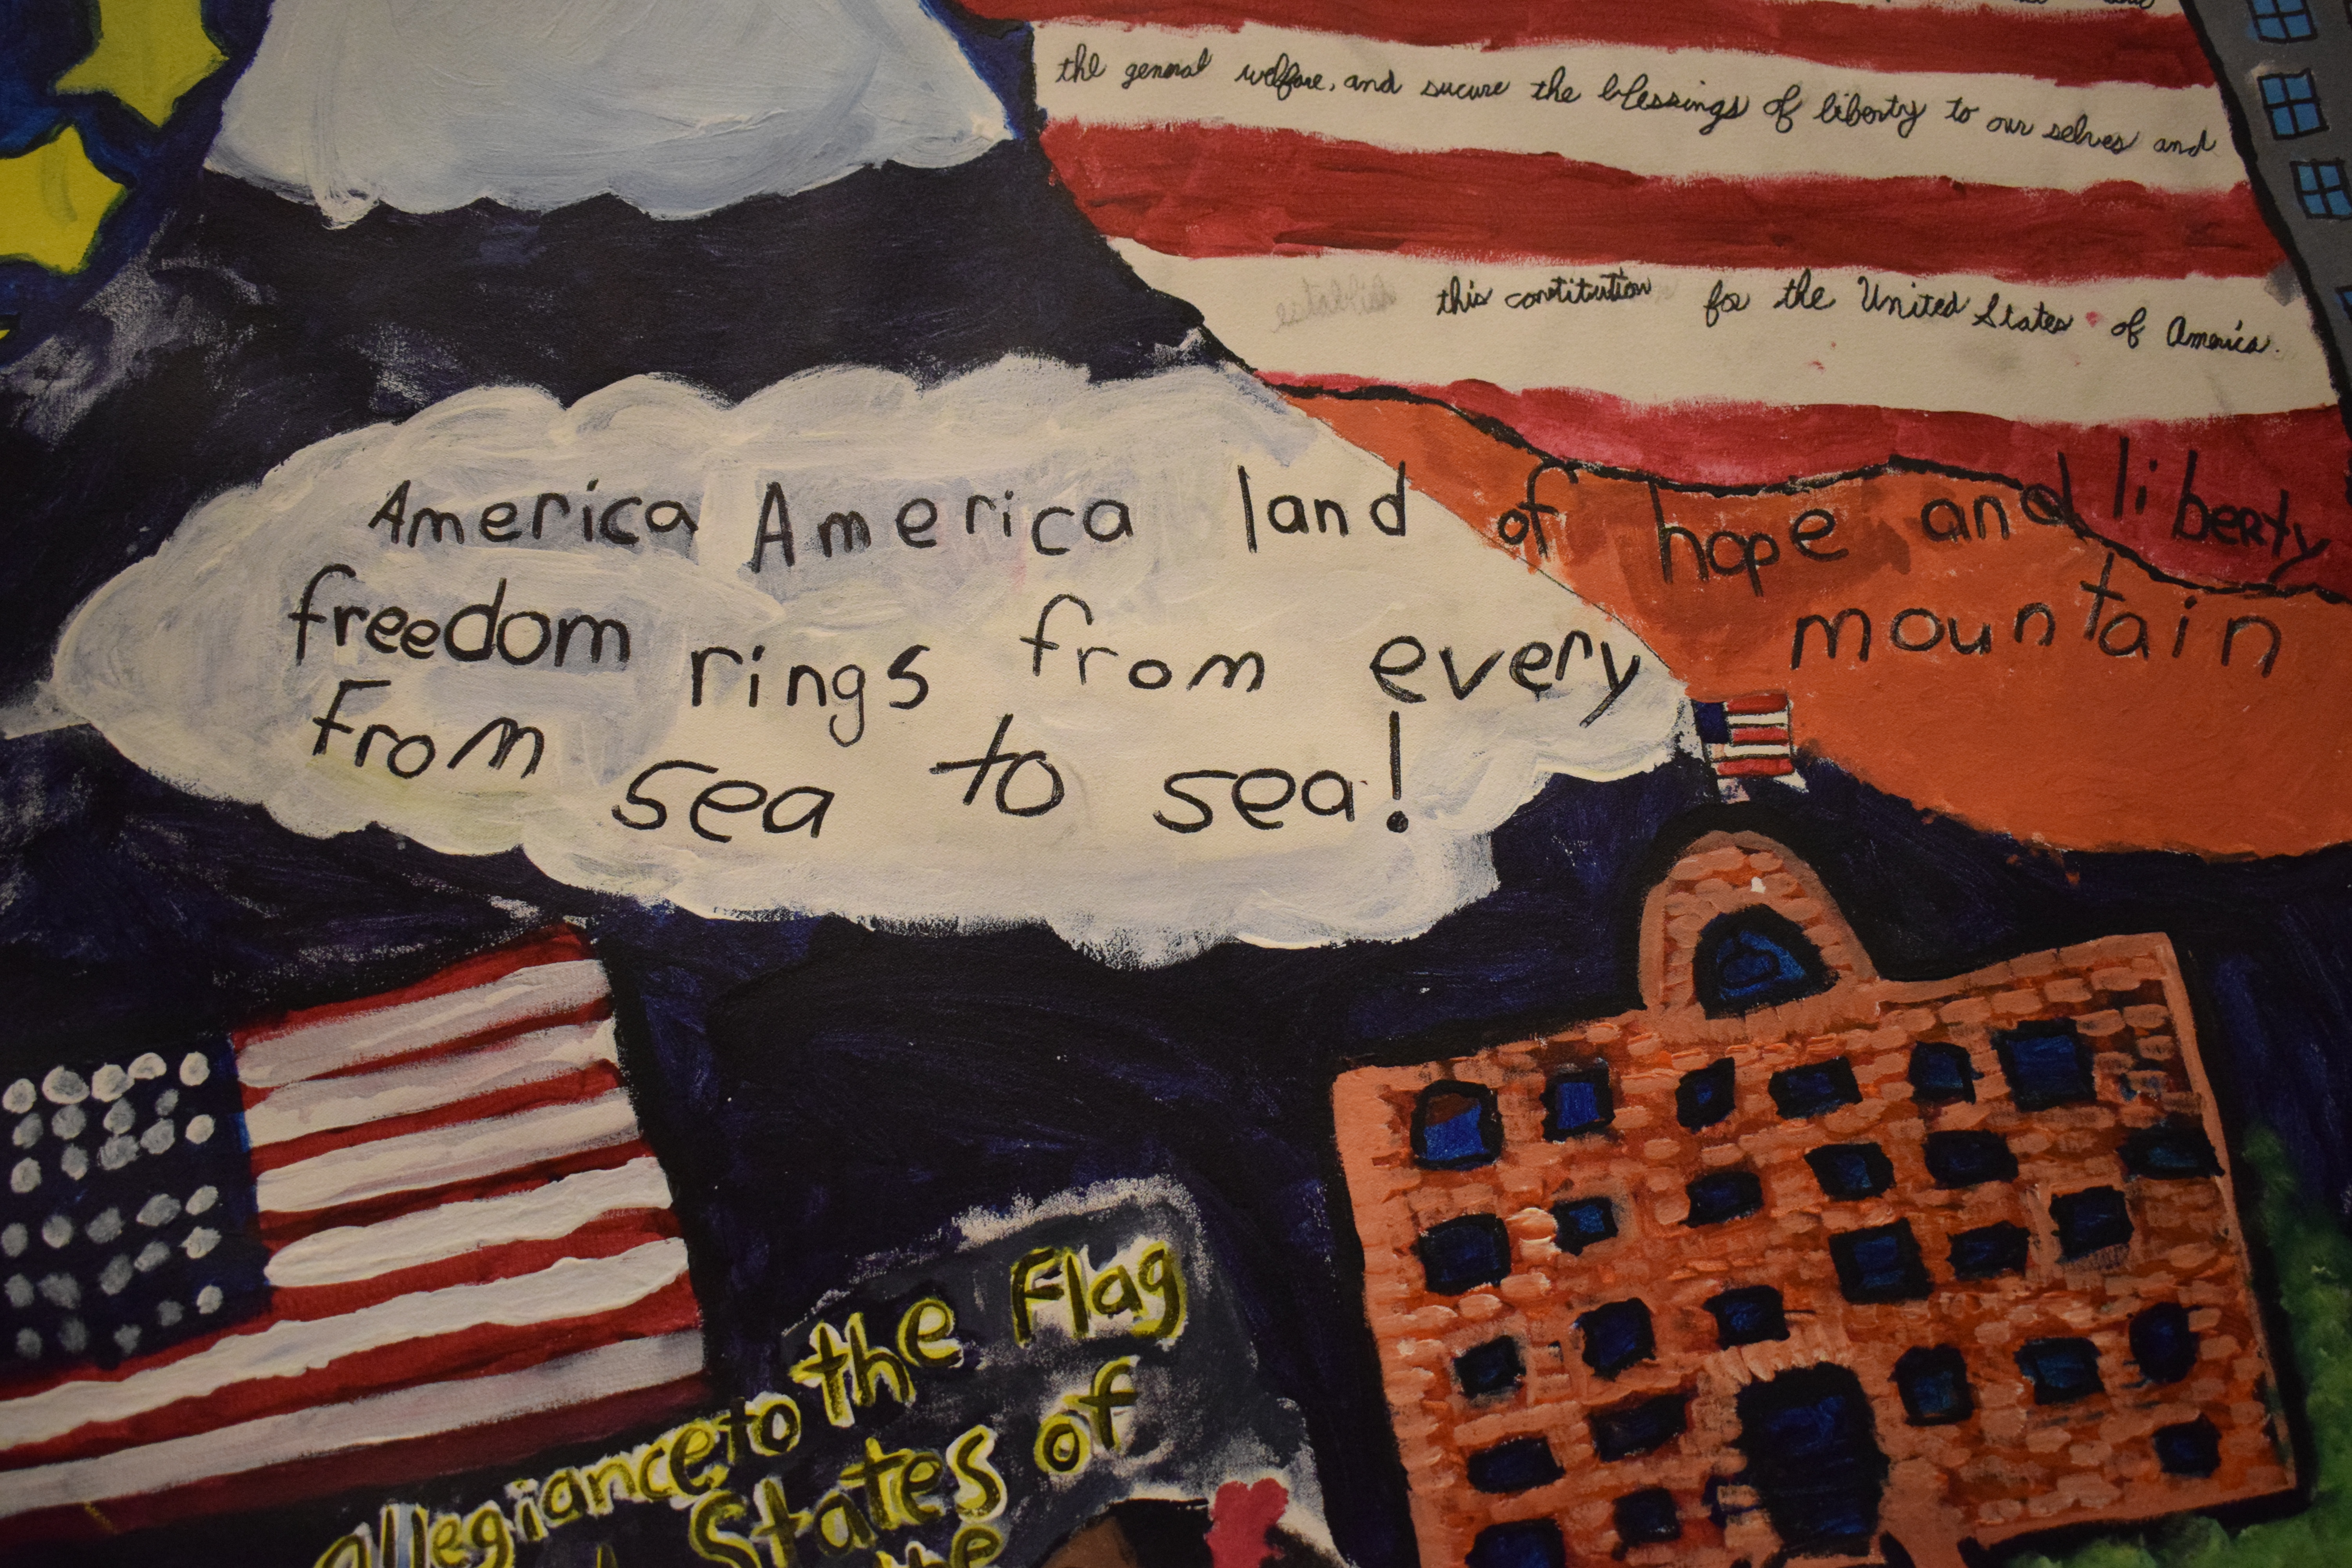 the general welfare, and sucure the blessings of liberty to our selves and
this constitution for the United States of America.
America America land of hope and liberty
freedom rings from every mountain
From sea to sea!
allegiance to the Flag
States of
the